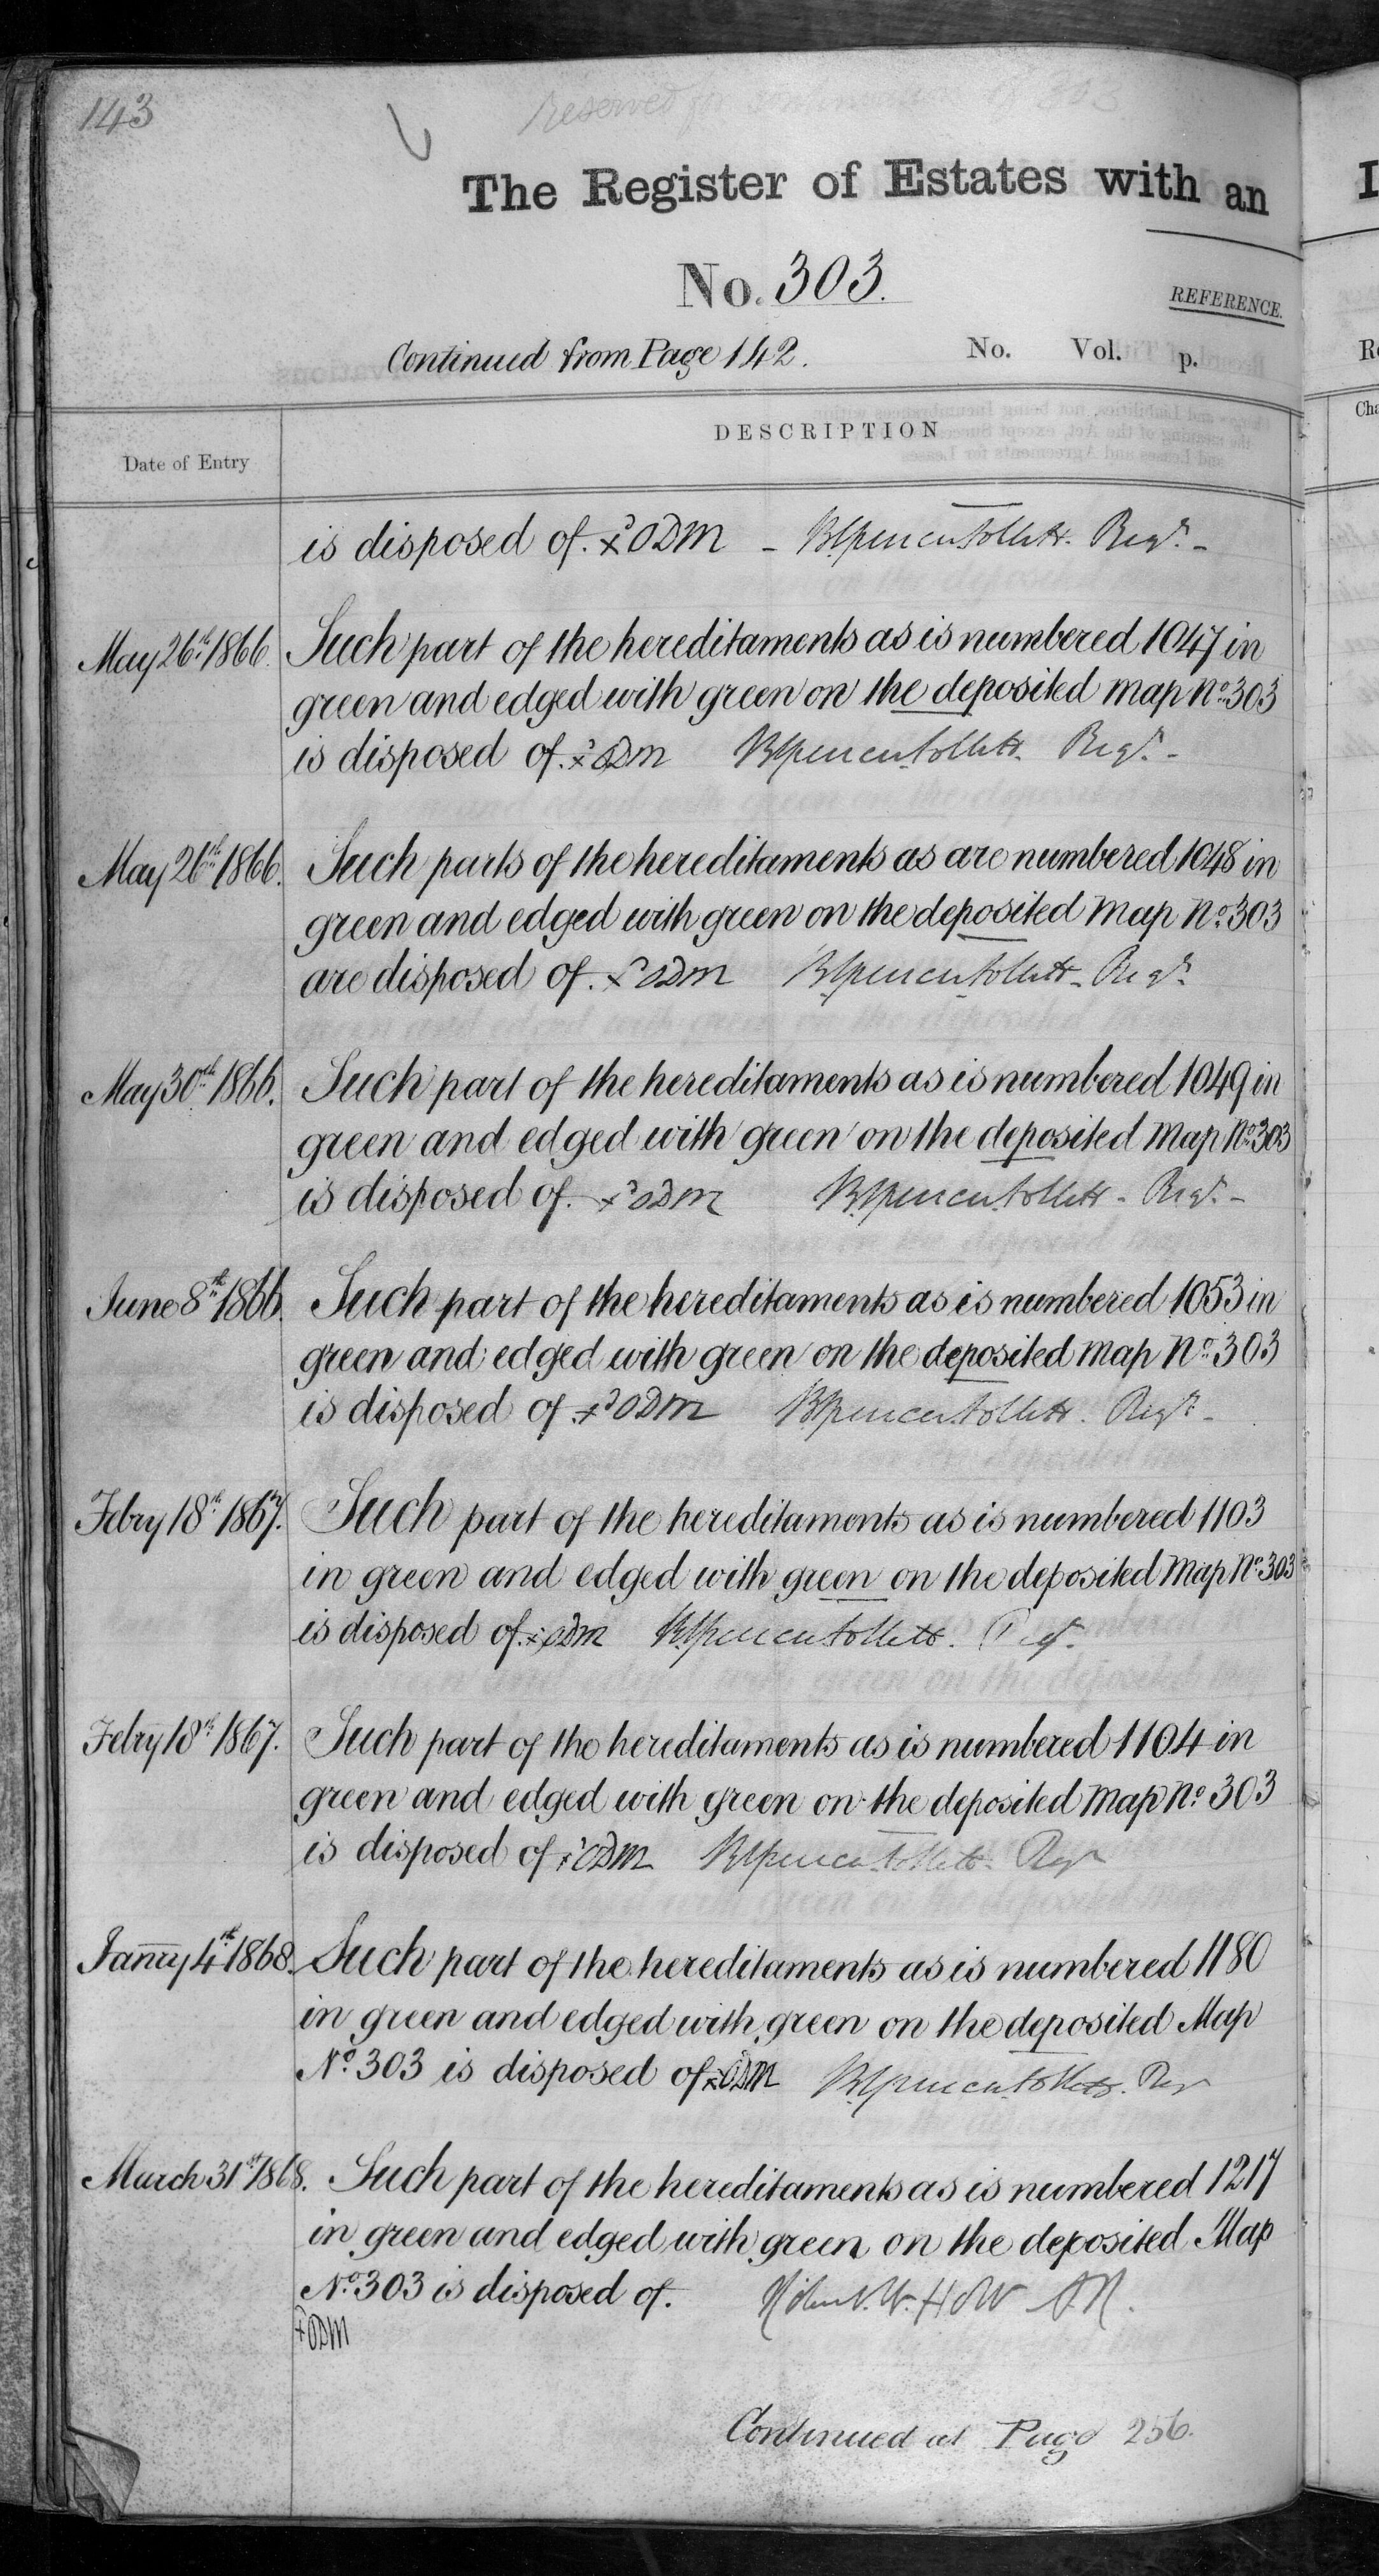 143
Reserved for
303
The Register of Estates with an
No. 303.
REFERENCE.
Continued from Page 142.
No. Vol. p.
Date of Entry
DESCRIPTION
is disposed of. ODM - BSpencer Follett. Regr. -
May 26th 1866. Such part of the hereditaments as is numbered 1047 in
green and edged with green on the deposited map No. 303
is disposed of. ODM BSpencer Follett. Regr. -
May 26th 1866. Such parts of the hereditaments as are numbered 1048 in
green and edged with green on the deposited Map No. 303
are disposed of. ODM BSpencer Follett - Regr.
May 30th 1866. Such part of the hereditaments as is numbered 1049 in
green and edged with green on the deposited Map No. 303
is disposed of. ODM BSpencer Follett - Regr. -
June 8th 1866. Such part of the hereditaments as is numbered 1053 in
green and edged with green on the deposited Map No. 303
is disposed of. ODM BSpencer Follett. Regr. -
Febry 18th 1867. Such part of the hereditaments as is numbered 1103
in green and edged with green on the deposited Map No. 303
is disposed of. ODM BSpencer Follett. Regr.
Febry 18th 1867. Such part of the hereditaments as is numbered 1104 in
green and edged with green on the deposited Map No. 303
is disposed of ODM BSpencer Follett. Regr
Janry 4th 1868. Such part of the hereditaments as is numbered 1180
in green and edged with green on the deposited Map
No. 303 is disposed of ODM BSpencer Follett. Regr
March 31st 1868. Such part of the hereditaments as is numbered 1217
in green and edged with green on the deposited Map
No. 303 is disposed of. Robert. W. HOW AR.
ODM
Continued at Page 256.